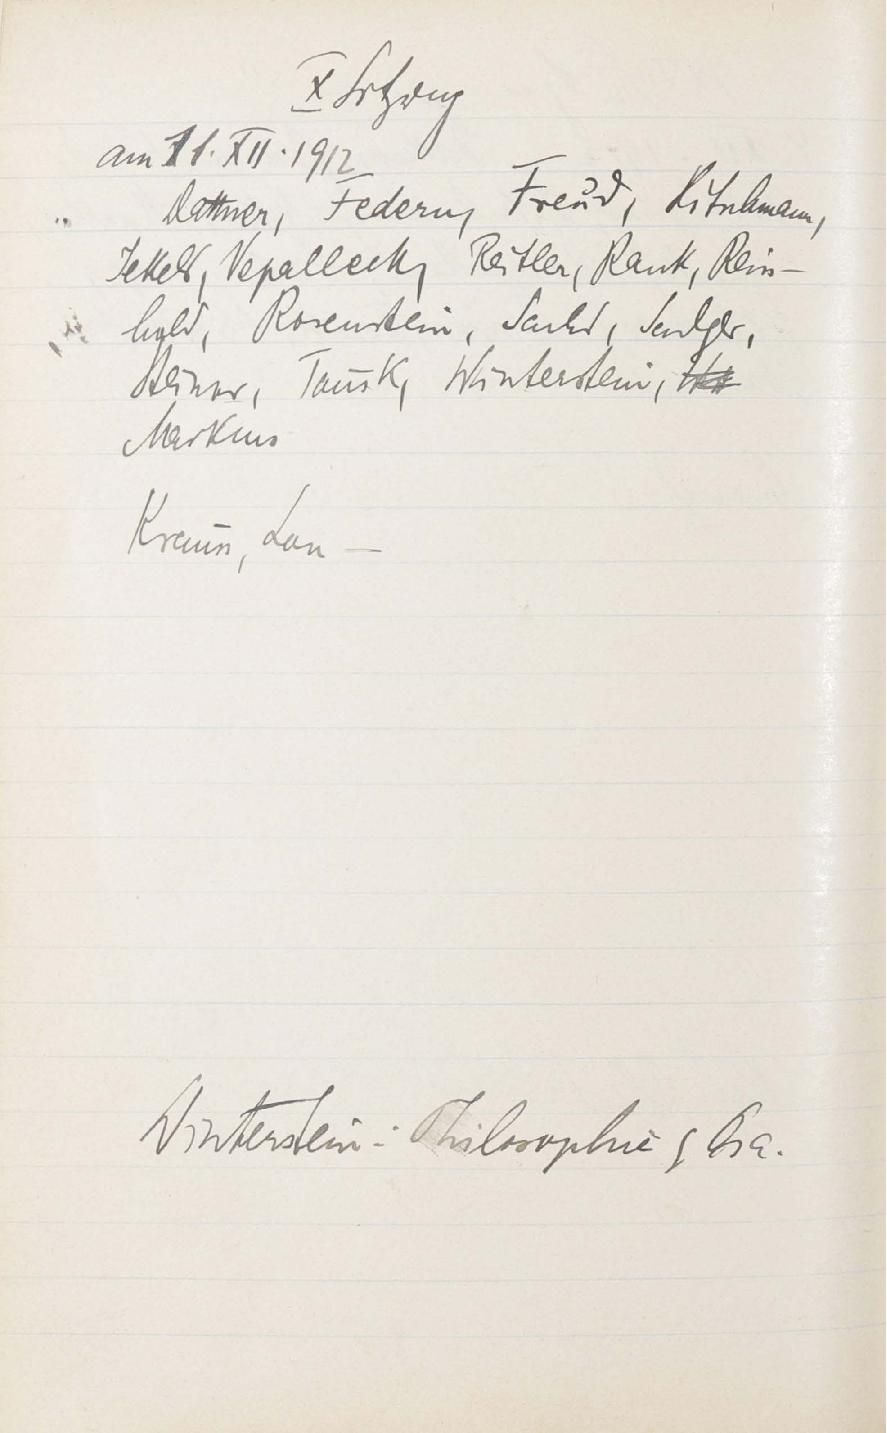 X Sitzung
am 11. XII. 1912
Dattner, Federn, Freud, Hitschmann,
Jekels, Reitler, Rank, Rein-
hold, Rosenstein, Sachs, Sadger,
Steiner, Tausk, Winterstein,
Markus
Krauss, Lou –
Winterstein: Philosophie &